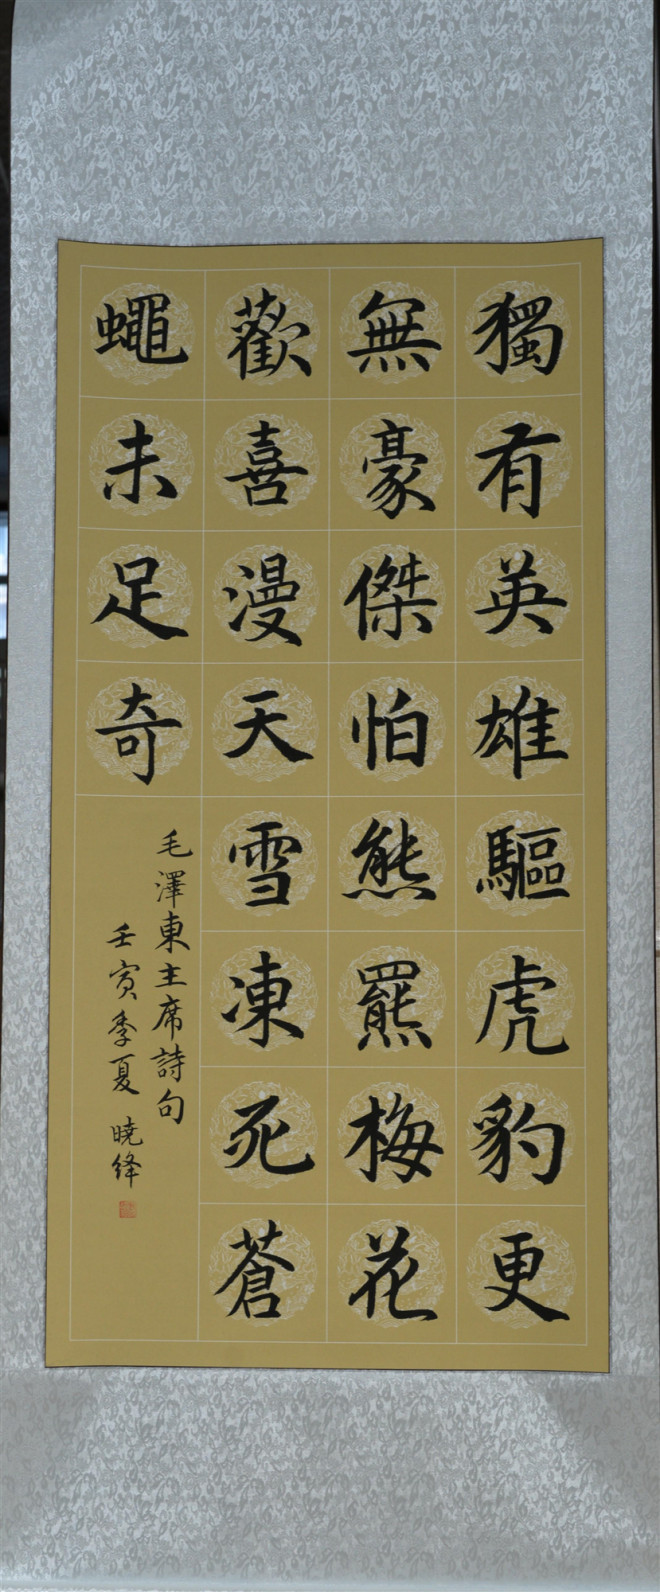 獨有英雄驅虎豹更
無豪傑怕熊羆梅花
歡喜漫天雪凍死蒼
蠅未足奇
毛澤東主席詩句
壬寅季夏 曉绛